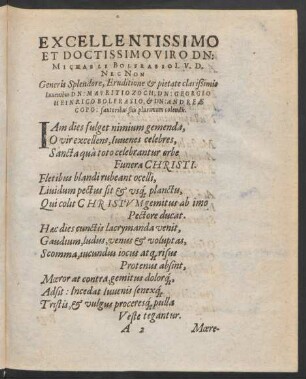 EXCELLENTISSIMO
ET DOCTISSIMO VIRO DN:
MICHAELI BOLFRASIO I. V. D.
NEC NON
Generis Splendore, Eruditione & pietate clarissimis
Iuuenibus DN: MAURITIO ZOCH, DN: GEORGIO
HEINRICO BOLFRASIO, & DN: ANDREÆ
COPO: fautoribus suis plurimum colendis.
IAm dies fulget nimium gemenda,
O vir excellens, Iuuenes celebres,
Sancta quâ toto celebrantur orbe
Funera CHRISTI.
Fletibus blandi rubeant ocelli,
Liuidum pectus sit & vsq́; planctu,
Qui colit CHRISTVM gemitus ab imo
Pectore ducat.
Hac dies cunctis lacrymanda venit,
Gaudium, ludus, venus & voluptas,
Scomma, iucundus iocus atq́; risus
Protenus absint,
Mœror at contra, gemitus dolorq́;
Adsit: Incedat Iuuenis senexq́;
Tristis, & vulgus proceresq́; pulla
Veste tegantur.
A 2 Mœre-